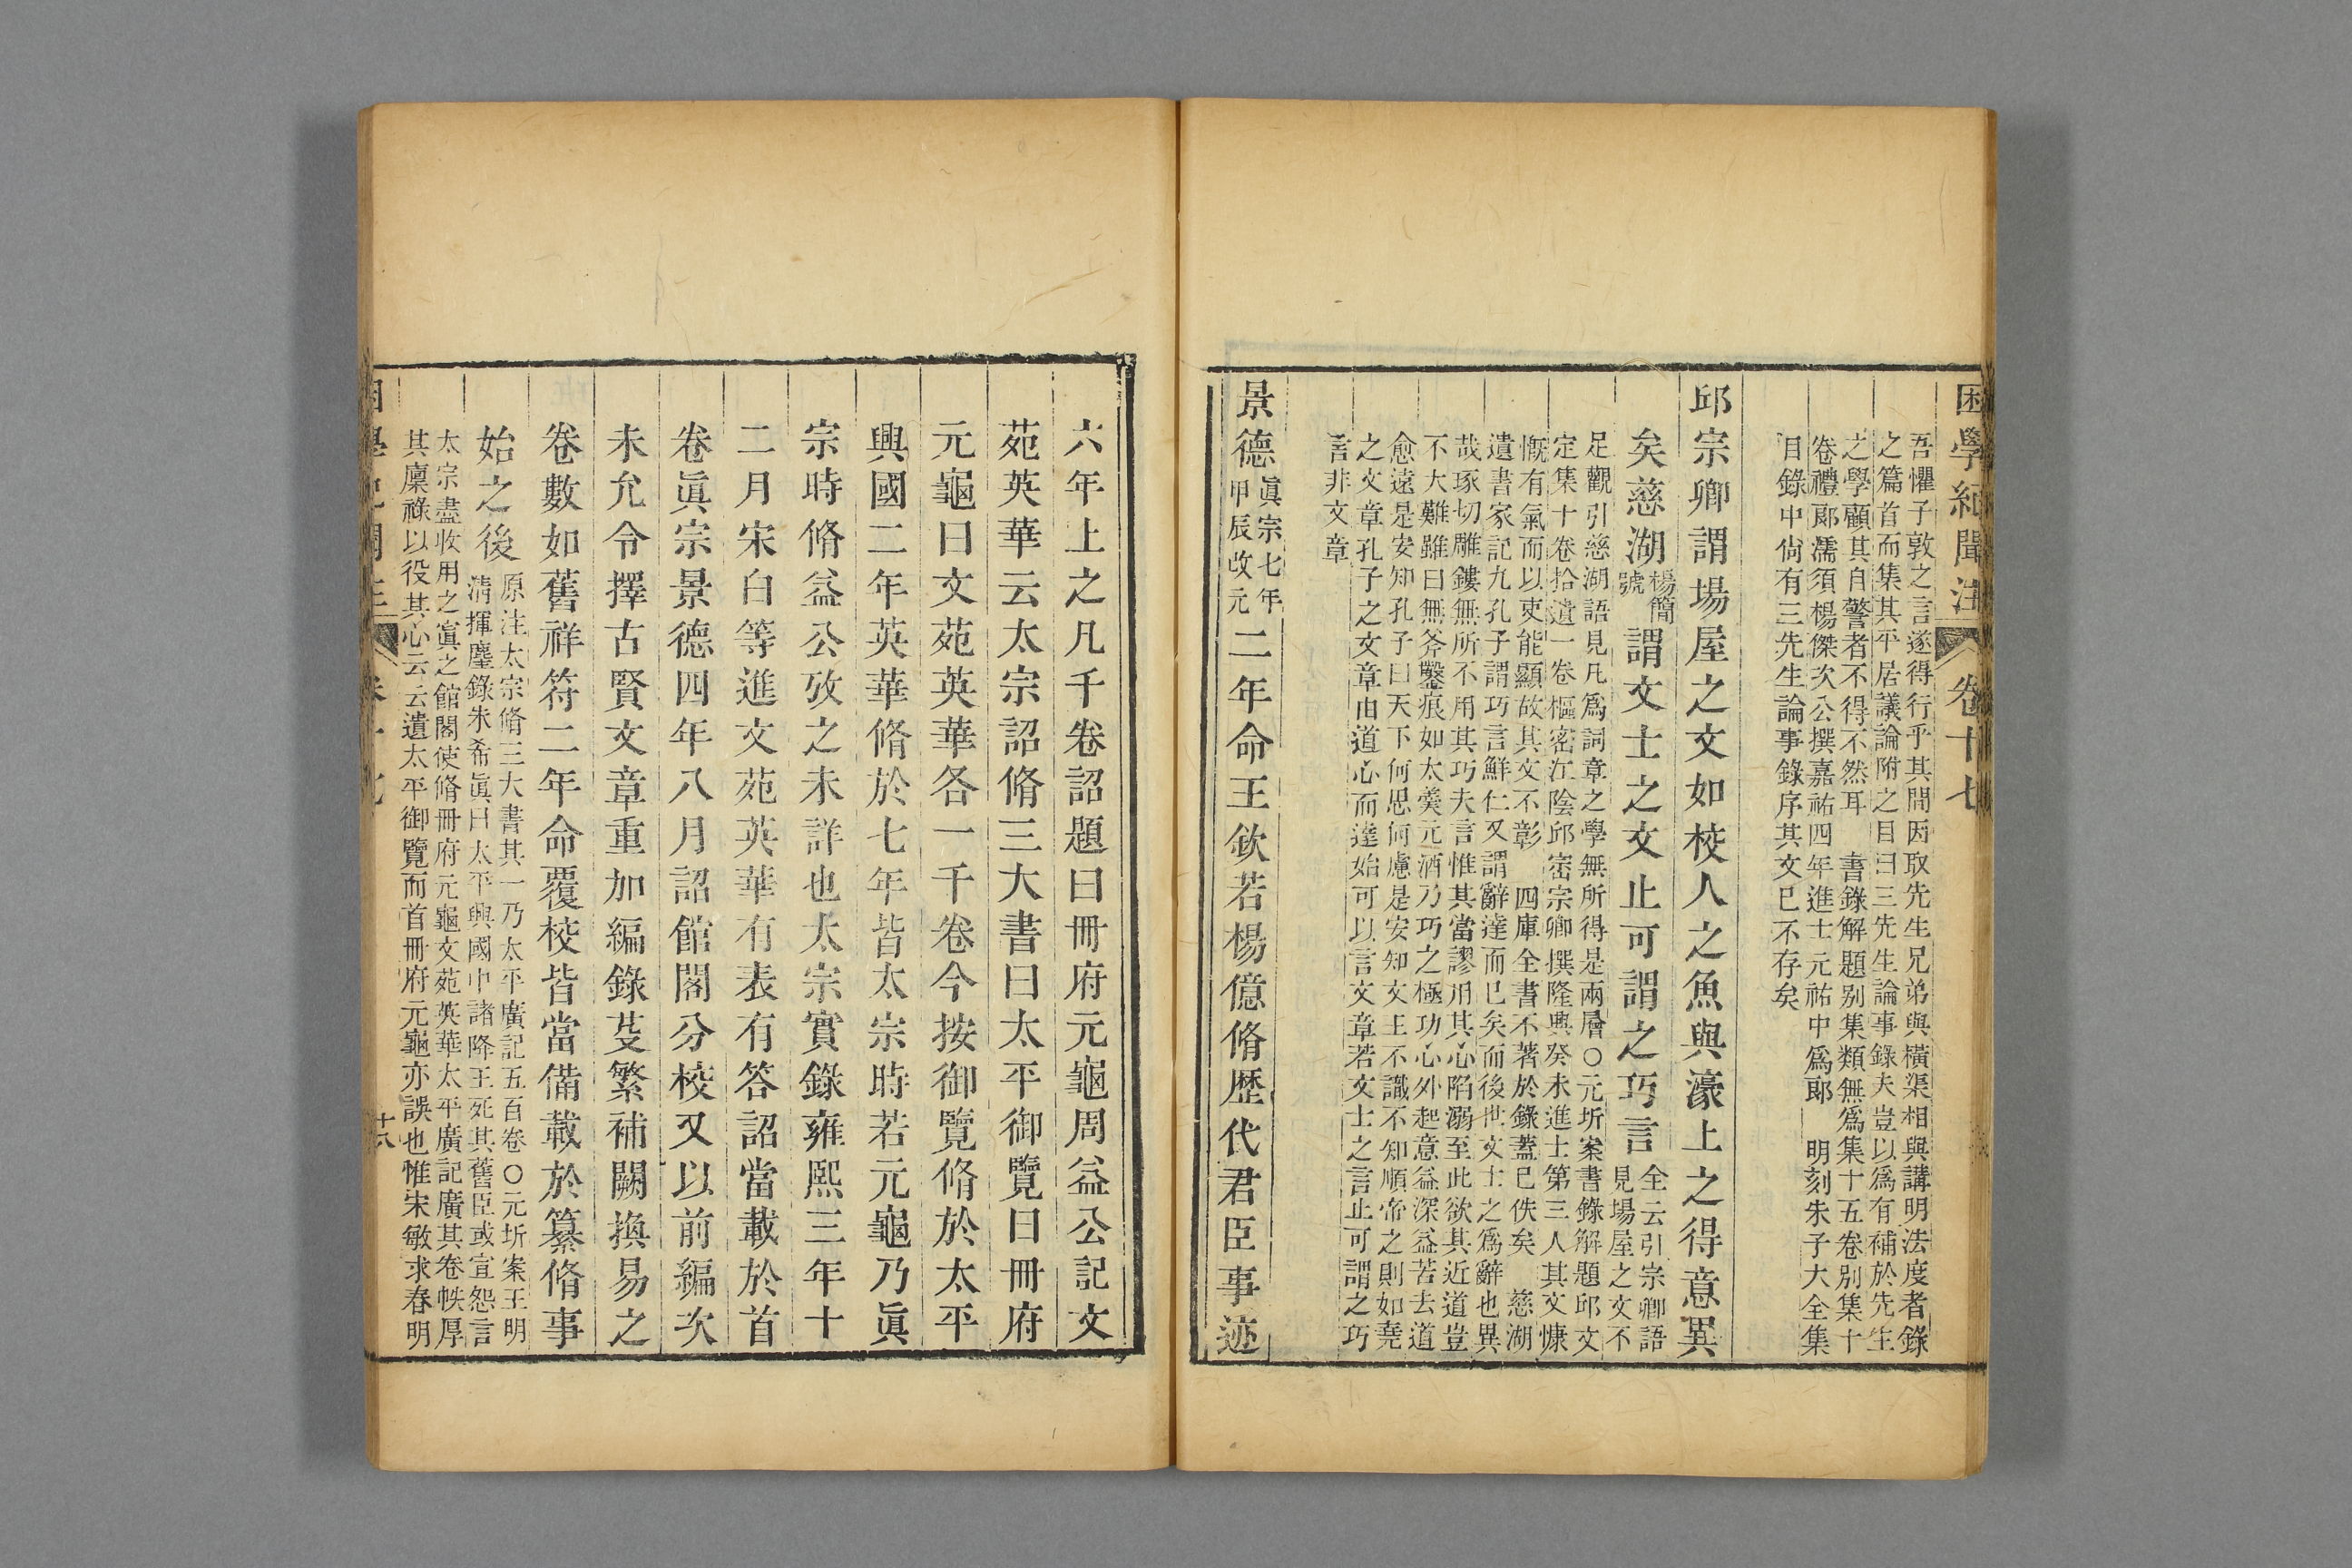 困學紀聞注 卷十七
吾懼子敦之言遂得行乎其間因取先生兄弟與橫渠相與講明法度者錄
之篇首而集其平居議論附之目曰三先生論事錄夫豈以爲有補於先生
之學顧其自警者不得不然耳 書錄解題別集類無爲集十五卷別集十
卷禮部濡須楊傑次公撰嘉祐四年進士元祐中爲郞 明刻朱子大全集
目錄中尙有三先生論事錄序其文已不存矣
邱宗卿謂場屋之文如校人之魚與濠上之得意異
矣慈湖
楊簡
號
謂文士之文止可謂之巧言
全云引宗卿語
見場屋之文不
足觀引慈湖語見凡爲詞章之學無所得是兩層○元圻案書錄解題邱文
定集十卷拾遺一卷樞密江陰邱崈宗卿撰隆興癸未進士第三人其文慷
慨有氣而以吏能顯故其文不彰 四庫全書不著於錄蓋已佚矣 慈湖
遺書家記九孔子謂巧言鮮仁又謂辭達而已矣而後世文士之爲辭也異
哉琢切雕鏤無所不用其巧夫言惟其當謬用其心陷溺至此欲其近道豈
不大難雖曰無斧鑿痕如太羹元酒乃巧之極功心外起意益深益苦去道
愈遠是安知孔子曰天下何思何慮是安知文王不識不知順帝之則如堯
之文章孔子之文章由道心而達始可以言文章若文士之言止可謂之巧
言非文章
景德
眞宗七年
甲辰改元
二年命王欽若楊億脩歷代君臣事迹
六年上之凡千卷詔題曰冊府元龜周益公記文
苑英華云太宗詔脩三大書曰太平御覽曰冊府
元龜曰文苑英華各一千卷今按御覽脩於太平
興國二年英華脩於七年皆太宗時若元龜乃眞
宗時脩益公攷之未詳也太宗實錄雍熙三年十
二月宋白等進文苑英華有表有答詔當載於首
卷眞宗景德四年八月詔館閣分校又以前編次
未允令擇古賢文章重加編錄芟繁補闕換易之
卷數如舊祥符二年命覆校皆當備載於纂脩事
始之後
原注太宗脩三大書其一乃太平廣記五百卷○元圻案王明
淸揮麈錄朱希眞曰太平興國中諸降王死其舊臣或宣怨言
太宗盡收用之寘之館閣使脩冊府元龜文苑英華太平廣記廣其卷帙厚
其廩祿以役其心云云遺太平御覽而首冊府元龜亦誤也惟宋敏求春明
十六